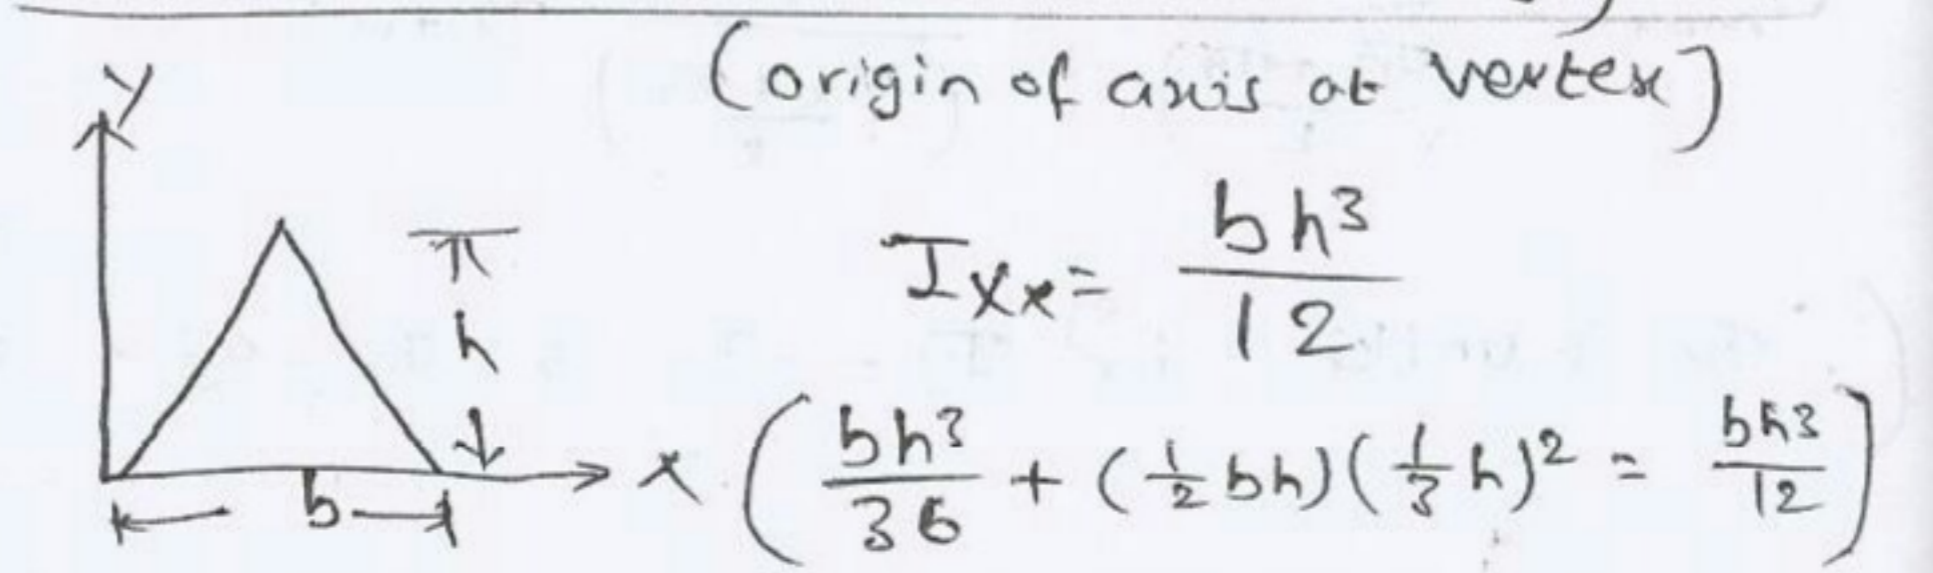 (origin of axis at vertex)
y
Ixx = bh³/12
h
x
(bh³/36 + (1/2 bh)(1/3 h)² = bh³/12)
b